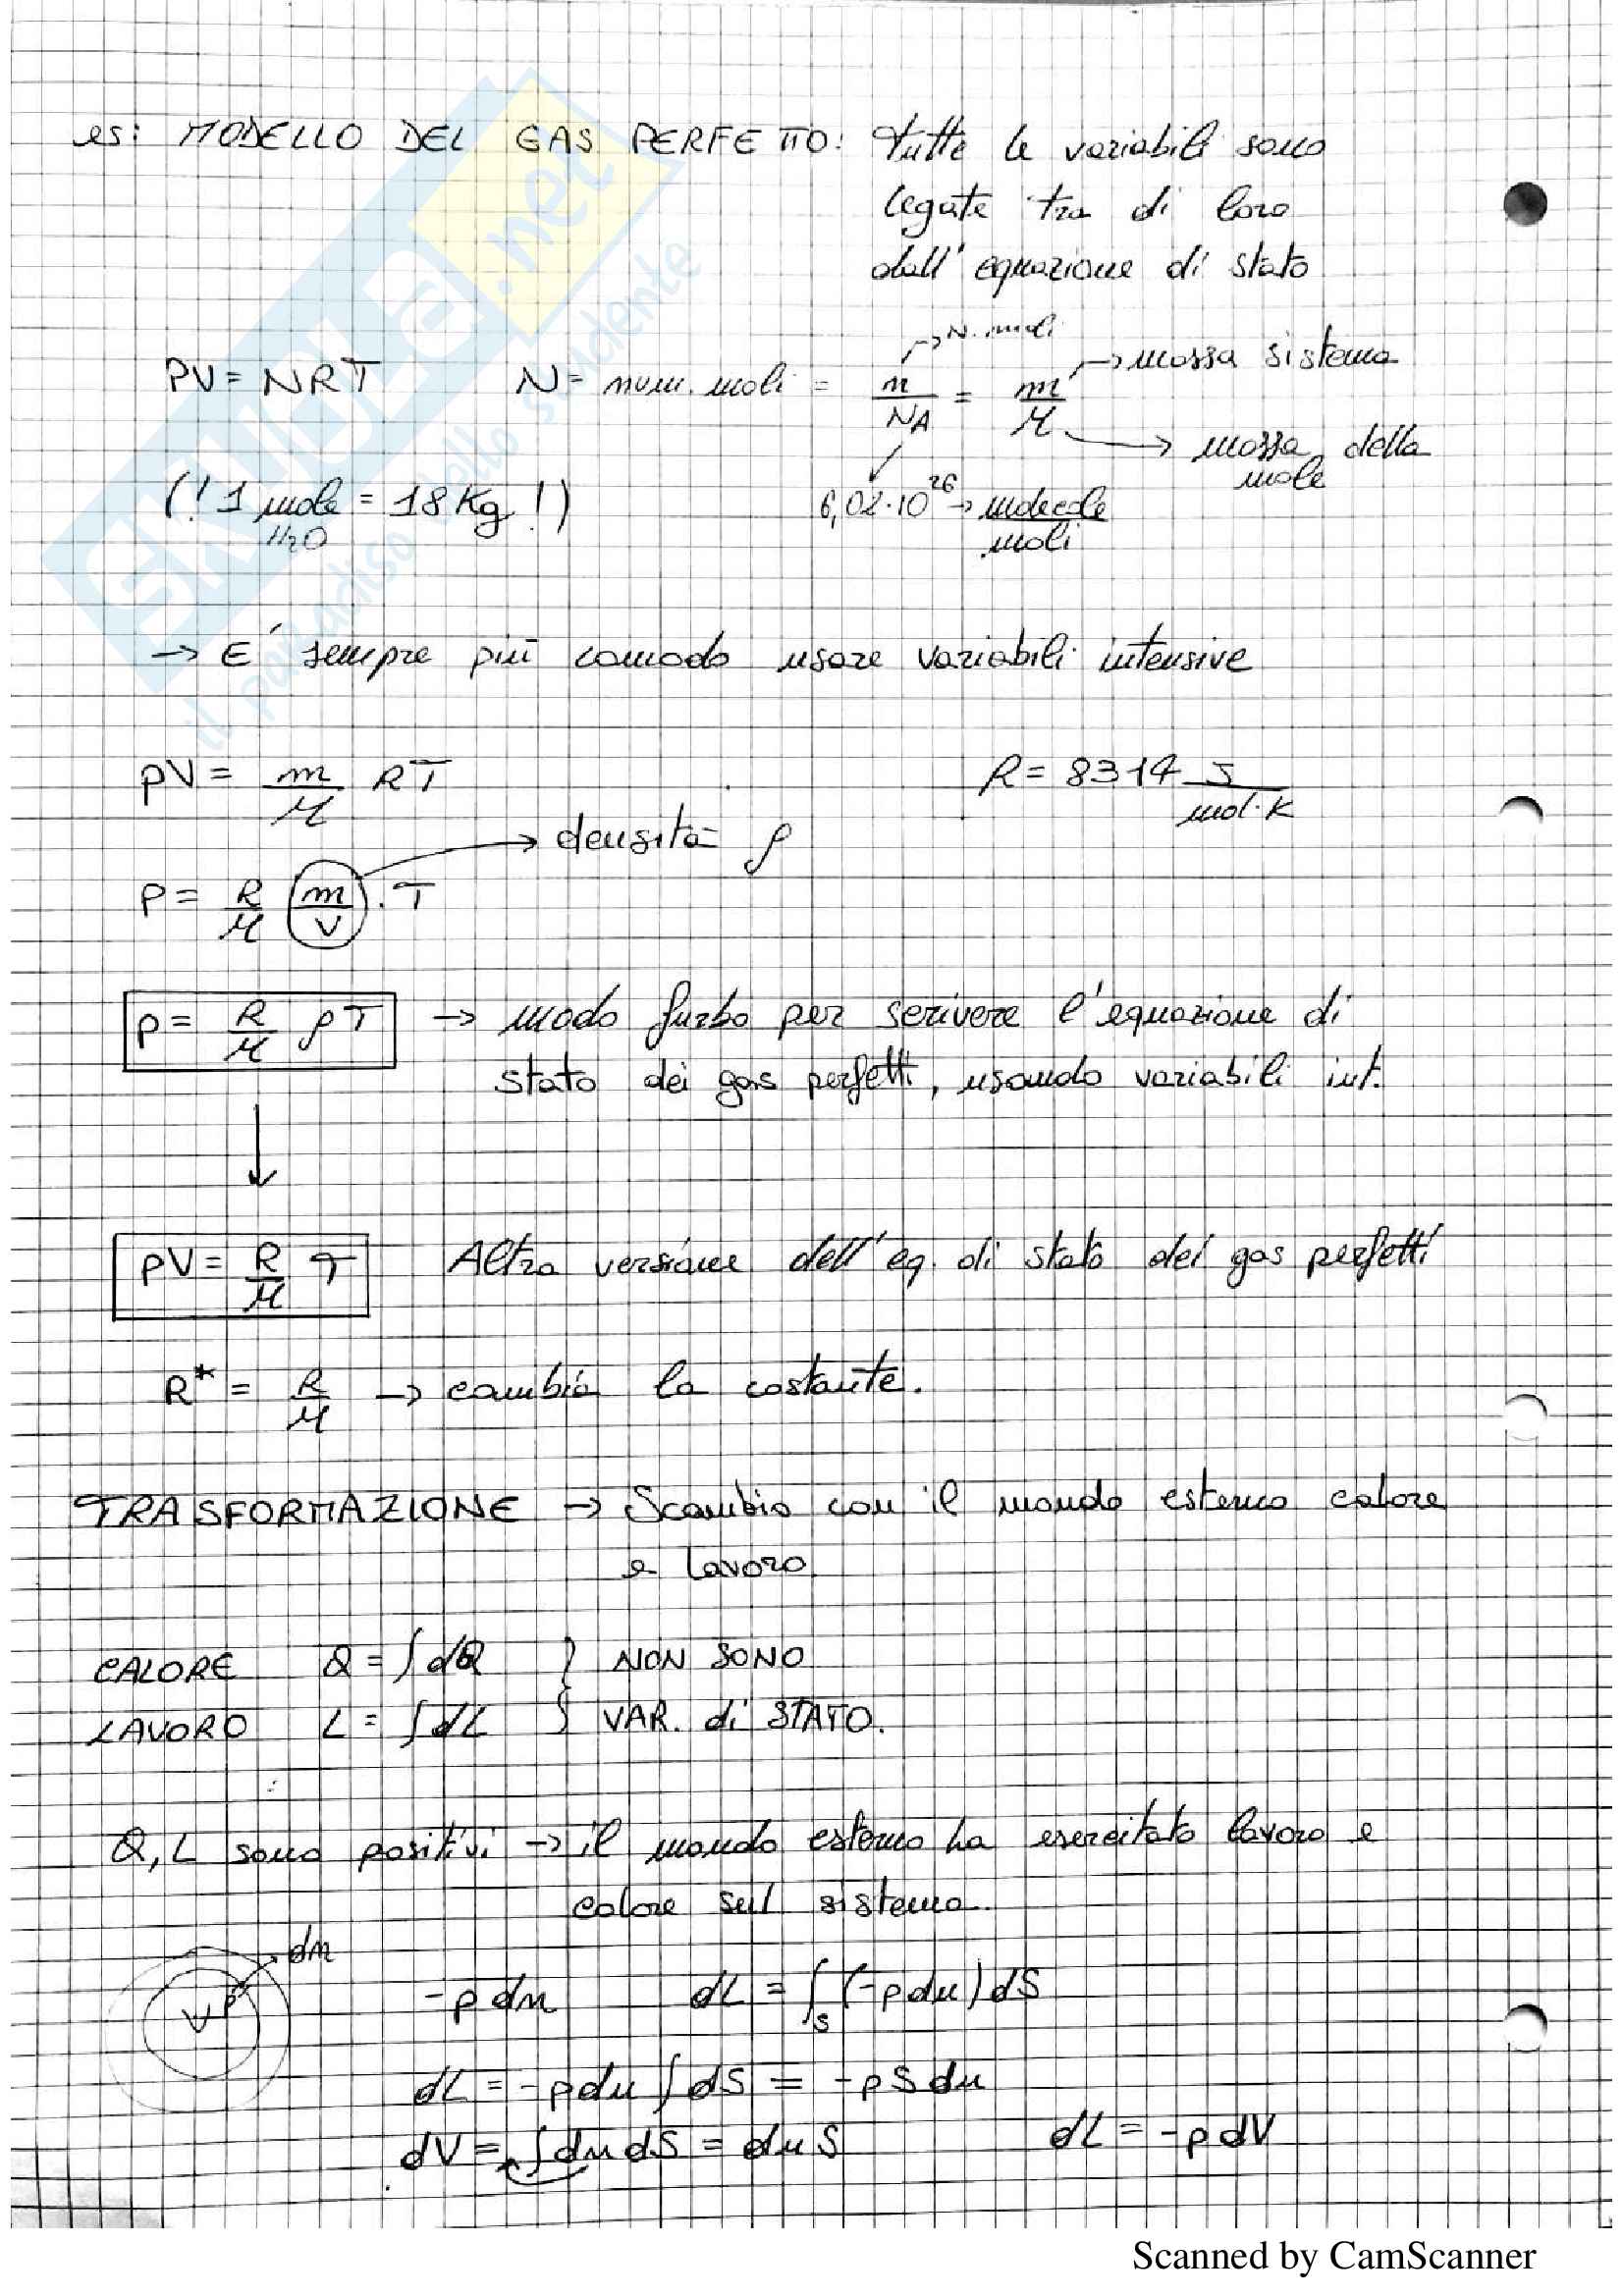 es: MODELLO DEL GAS PERFETTO: tutte le variabili sono
legate tra di loro
dall'equazione di stato
→ N. moli
PV = NRT N = num. moli = n/NA = m/M → massa sistema
→ massa della mole
(! 1 mole H2O = 18 Kg !) 6,02·10^26 → molecole/moli
→ E' sempre più comodo usare variabili intensive
pV = m/M RT R = 8314 J/mol·K
→ densità ρ
P = R/M (m/V) · T
P = R/M ρT → modo furbo per scrivere l'equazione di
stato dei gas perfetti, usando variabili int.
↓
pV = R/M T Altra versione dell'eq. di stato dei gas perfetti
R* = R/M → cambia la costante.
TRASFORMAZIONE → Scambio con il mondo esterno calore
e lavoro
CALORE Q = ∫dQ } NON SONO
LAVORO L = ∫dL } VAR. di STATO.
Q, L sono positivi → il mondo esterno ha esercitato lavoro e
calore sul sistema.
dn
V p -p dn dL = ∫s (-p dn) dS
dL = -p dn ∫ dS = -p S dn
dV = ∫ dn dS = dn S dL = -p dV
SKUOLA.net
il paradiso dello studente
Scanned by CamScanner